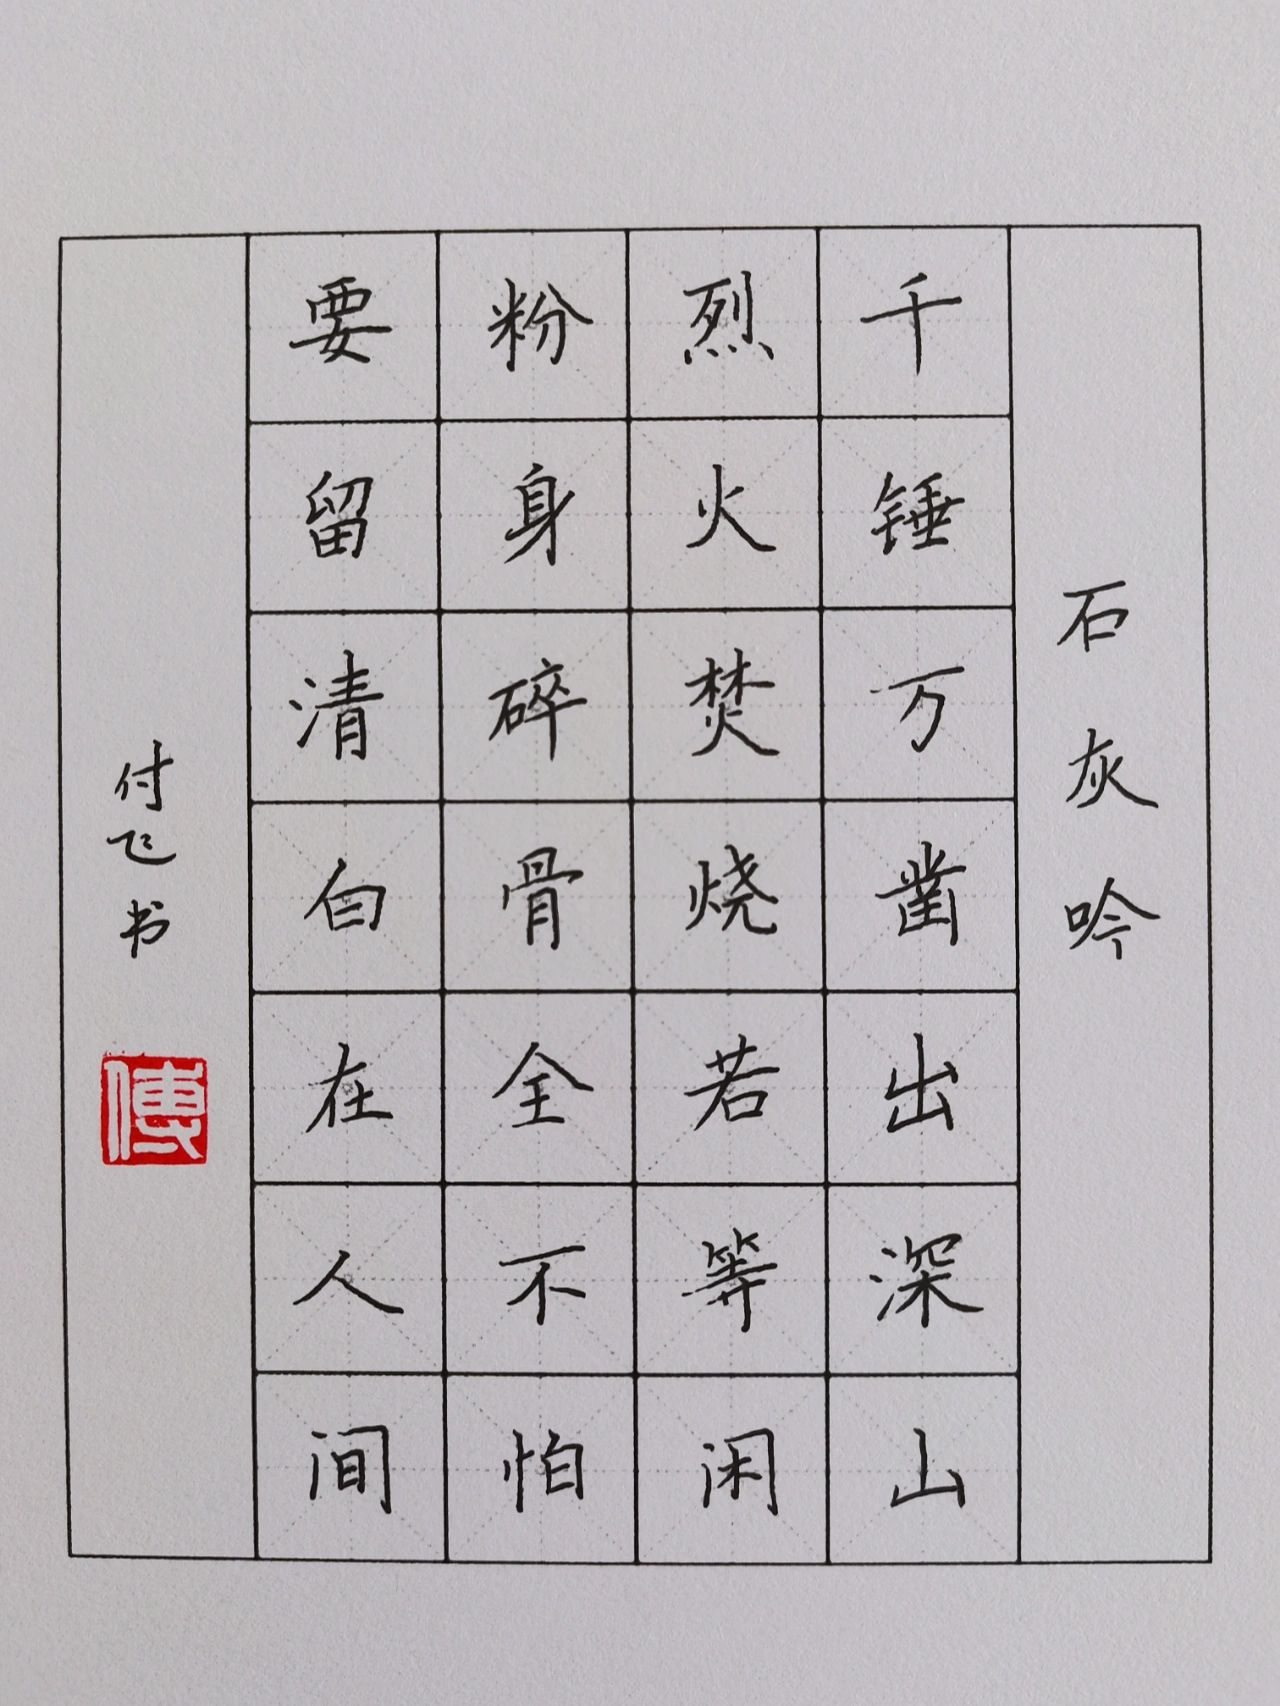 石灰吟
千锤万凿出深山
烈火焚烧若等闲
粉身碎骨全不怕
要留清白在人间
付飞书
傅